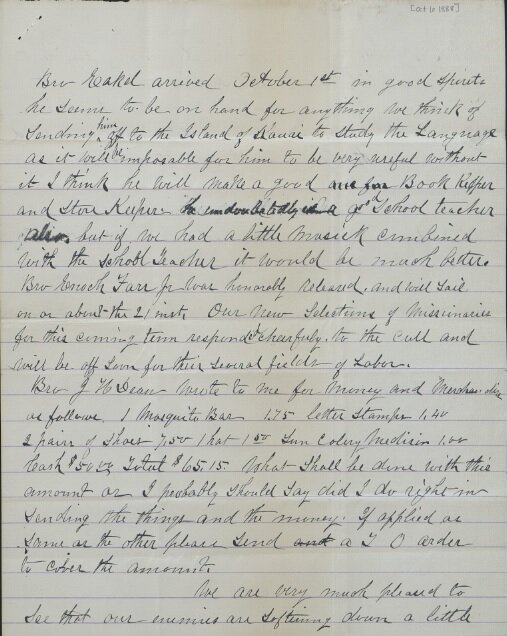 [Oct 6 1888]
Bro Eakel arrived October 1st in good spirits
he seems to be on hand for anything we think of
Sending him off to the Island of Kauai to study the Language
as it will be imposable for him to be very useful without
it I think he will make a good Book Keeper
and Store Keeper he undoubtedly is a good School teacher
also, but if we had a little musick combined
with the School Teacher it would be much better.
Bro Enoch Farr Jr was honorably released, and will Sail
on or about the 21 inst, Our New Selections of Missionaries
for this coming term responded cheerfuly, to the Call and
will be off Soon for their Several fields of Labor.
Bro J H Dean wrote to me for Money and Merchandise
as follows, 1 Mosquito Bar 1.75 letter Stamps 1,40
2 pairs of Shoes 7,50 1 hat 1 50 Sun Celery Medison 1,00
Cash $50,00 Total $65,15 What Shall be done with this
amount or I probably Should Say did I do right in
Sending the things and the money. If applied as
Same as the other please Send and a T O order
to cover the amount.
We are very much pleased to
See that our enemies are Softning down a little